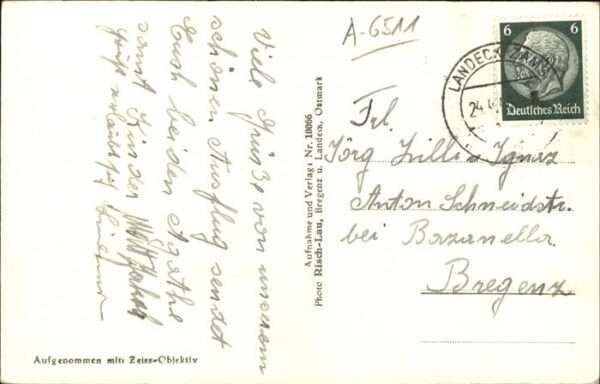 Viele Grüße von unserem
schönen Ausflug sendet
Euch beiden Agathe
samt Kinder
Aufgenommen mit: Zeiss-Objektiv
Aufnahme und Verlag: Nr. 10066
Photo Risch-Lau, Bregenz u. Landeck, Ostmark
A-6511
6 6
Deutsches Reich
LANDECK
24
Frl.
Jörg Lilli Ignaz
Anton Schneidstr.
bei Bazanella
Bregenz